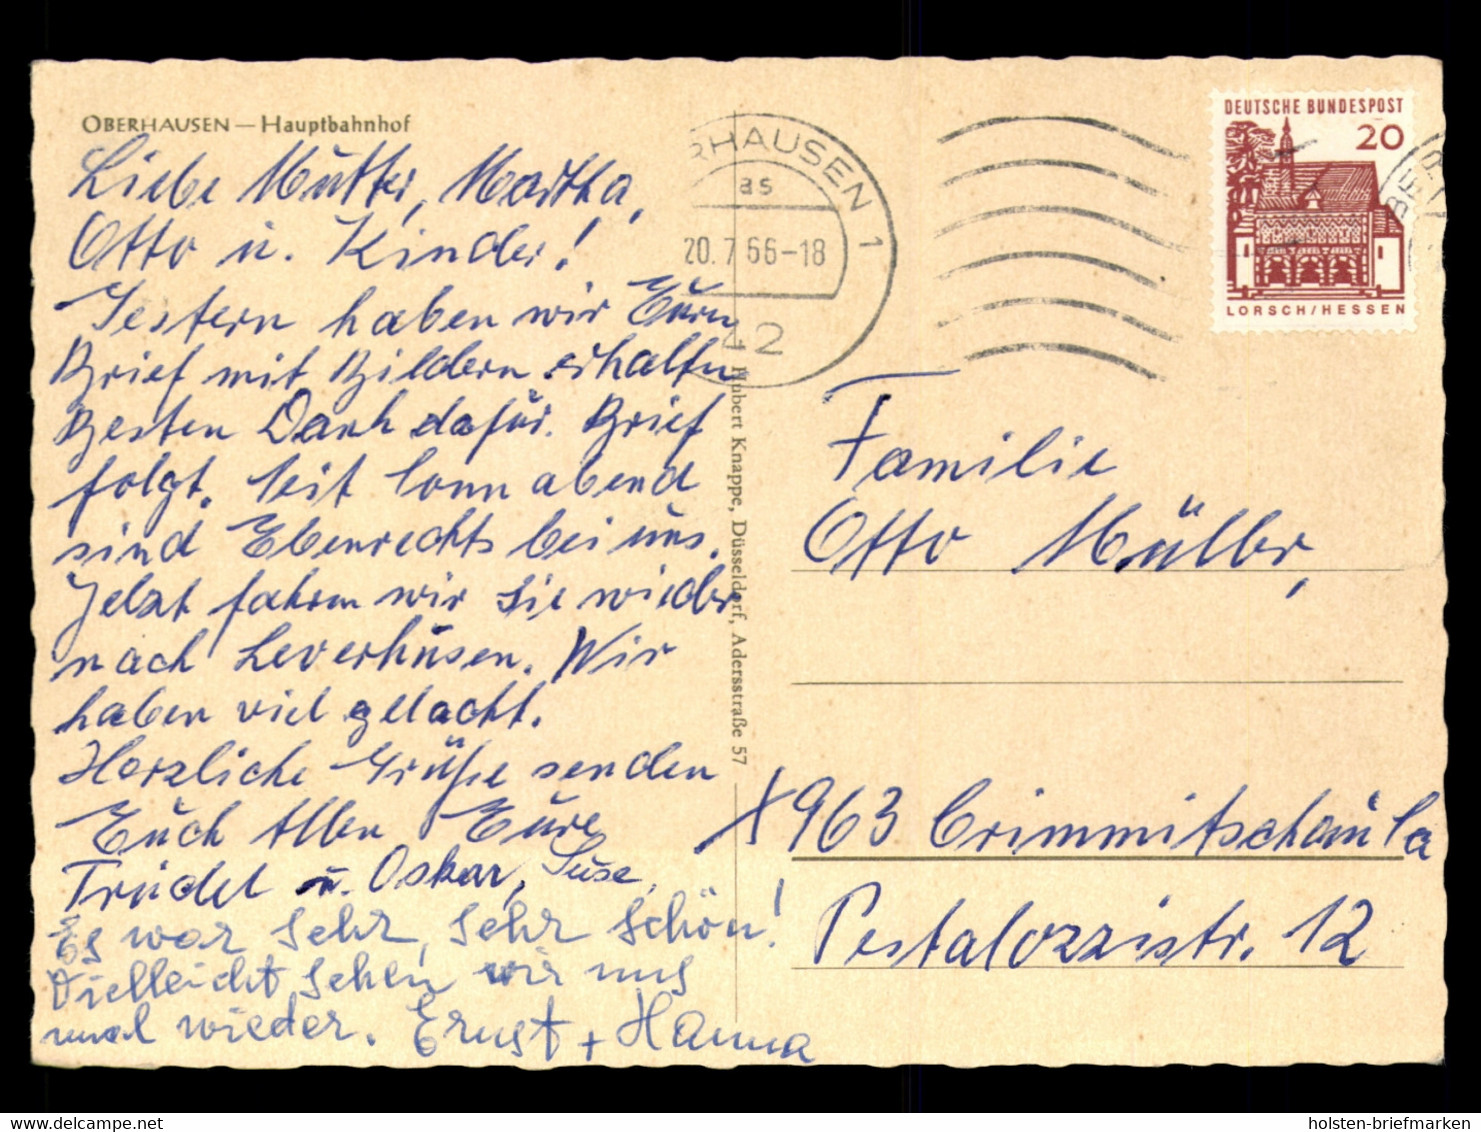 OBERHAUSEN — Hauptbahnhof
Liebe Mutter, Martha,
Otto u. Kinder!
Gestern haben wir Euren
Brief mit Bildern erhalten
Besten Dank dafür. Brief
folgt. Seit Sonnabend
sind Ebenrechts bei uns.
Jetzt fahren wir sie wieder
nach Leverkusen. Wir
haben viel gelacht.
Herzliche Grüße senden
Euch Allen Eure
Trudel u. Oskar, Suse.
Es war sehr, sehr schön!
Vielleicht sehen wir uns
mal wieder. Ernst + Hanna
Hubert Knappe, Düsseldorf, Adersstraße 57
RHAUSEN 1
as
20.7.66-18
42
DEUTSCHE BUNDESPOST
20
LORSCH/HESSEN
Familie
Otto Müller,
X 963 Crimmitschau/Sa
Pestalozzistr. 12
holsten-briefmarken